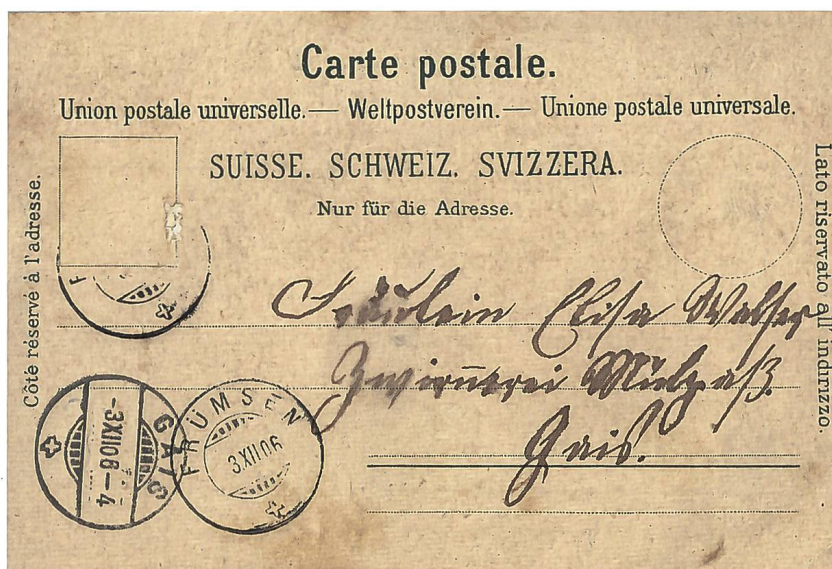 Carte postale.
Union postale universelle. — Weltpostverein. — Unione postale universale.
SUISSE. SCHWEIZ. SVIZZERA.
Nur für die Adresse.
Côté réservé à l'adresse.
Lato riservato all indrizzo.
Fräulein Elisa Walser
Zwirnerei
Gais.
F
GAIS
-3XII06-4
FRÜMSEN
3.XII.06